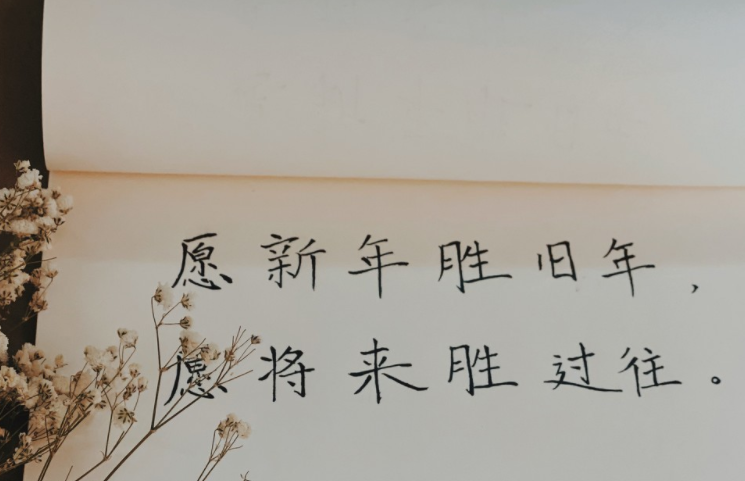 愿新年胜旧年，
愿将来胜过往。